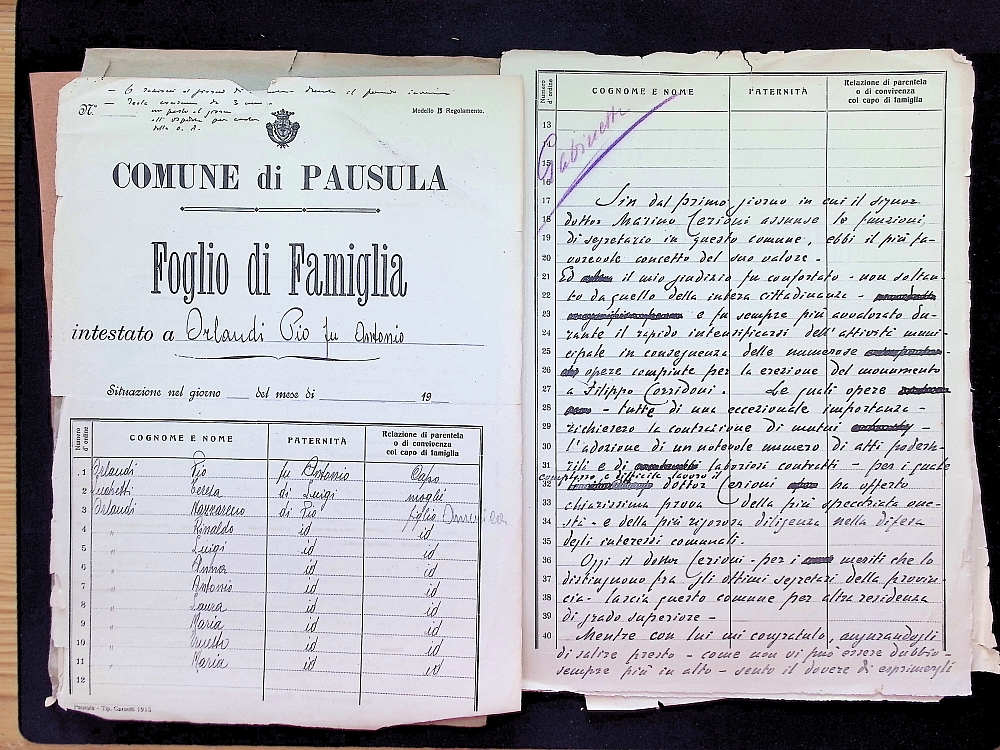 N.º
Modello B Regolamento.
COMUNE di PAUSULA
Foglio di Famiglia
intestato a Orlandi Pio fu Antonio
Situazione nel giorno ___ del mese di ___ 19
Numero d'ordine
COGNOME E NOME
PATERNITÀ
Relazione di parentela o di convivenza col capo di famiglia
1 Orlandi Pio fu Antonio Capo
2 Teresa di Luigi moglie
3 Orlandi Nazzareno di Pio figlio
4 " Rinaldo id id
5 " Luigi id id
6 " Anna id id
7 " Antonio id id
8 " Laura id id
9 " Maria id id
10 " id id
11 " Maria id id
12
Pausula - Tip. Crocetti 1913
Numero d'ordine
COGNOME E NOME
PATERNITÀ
Relazione di parentela o di convivenza col capo di famiglia
13
14
15
16
Gabinetto
17 Sin dal primo giorno in cui il signor
18 dottor Marino Cerioni assunse le funzioni
19 di segretario in questo comune, ebbi il più fa-
20 vorevole concetto del suo valore.
21 Ed il mio giudizio fu confortato - non soltan-
22 to da quello della intera cittadinanza -
23 e fu sempre più avvalorato du-
24 rante il rapido intensificarsi dell'attività muni-
25 cipale in conseguenza delle numerose
26 opere compiute per la erezione del monumento
27 a Filippo Corridoni. Le quali opere
28 - tutte di una eccezionale importanza -
29 richiesero la contrazione di mutui
30 l'adozione di un notevole numero di atti podesta-
31 rili e di laboriosi contratti - per i quale
complesso e difficile lavoro il
32 dottor Cerioni ha offerto
33 chiarissima prova della più specchiata one-
34 stà - e della più rigorosa diligenza nella difesa
35 degli interessi comunali.
36 Oggi il dottor Cerioni - per i meriti che lo
37 distinguono fra gli ottimi segretari della provin-
38 cia - lascia questo comune per altra residenza
39 di grado superiore -
40 Mentre con lui mi congratulo, augurandogli
di salire presto - come non vi può essere dubbio -
sempre più in alto - sento il dovere di esprimergli